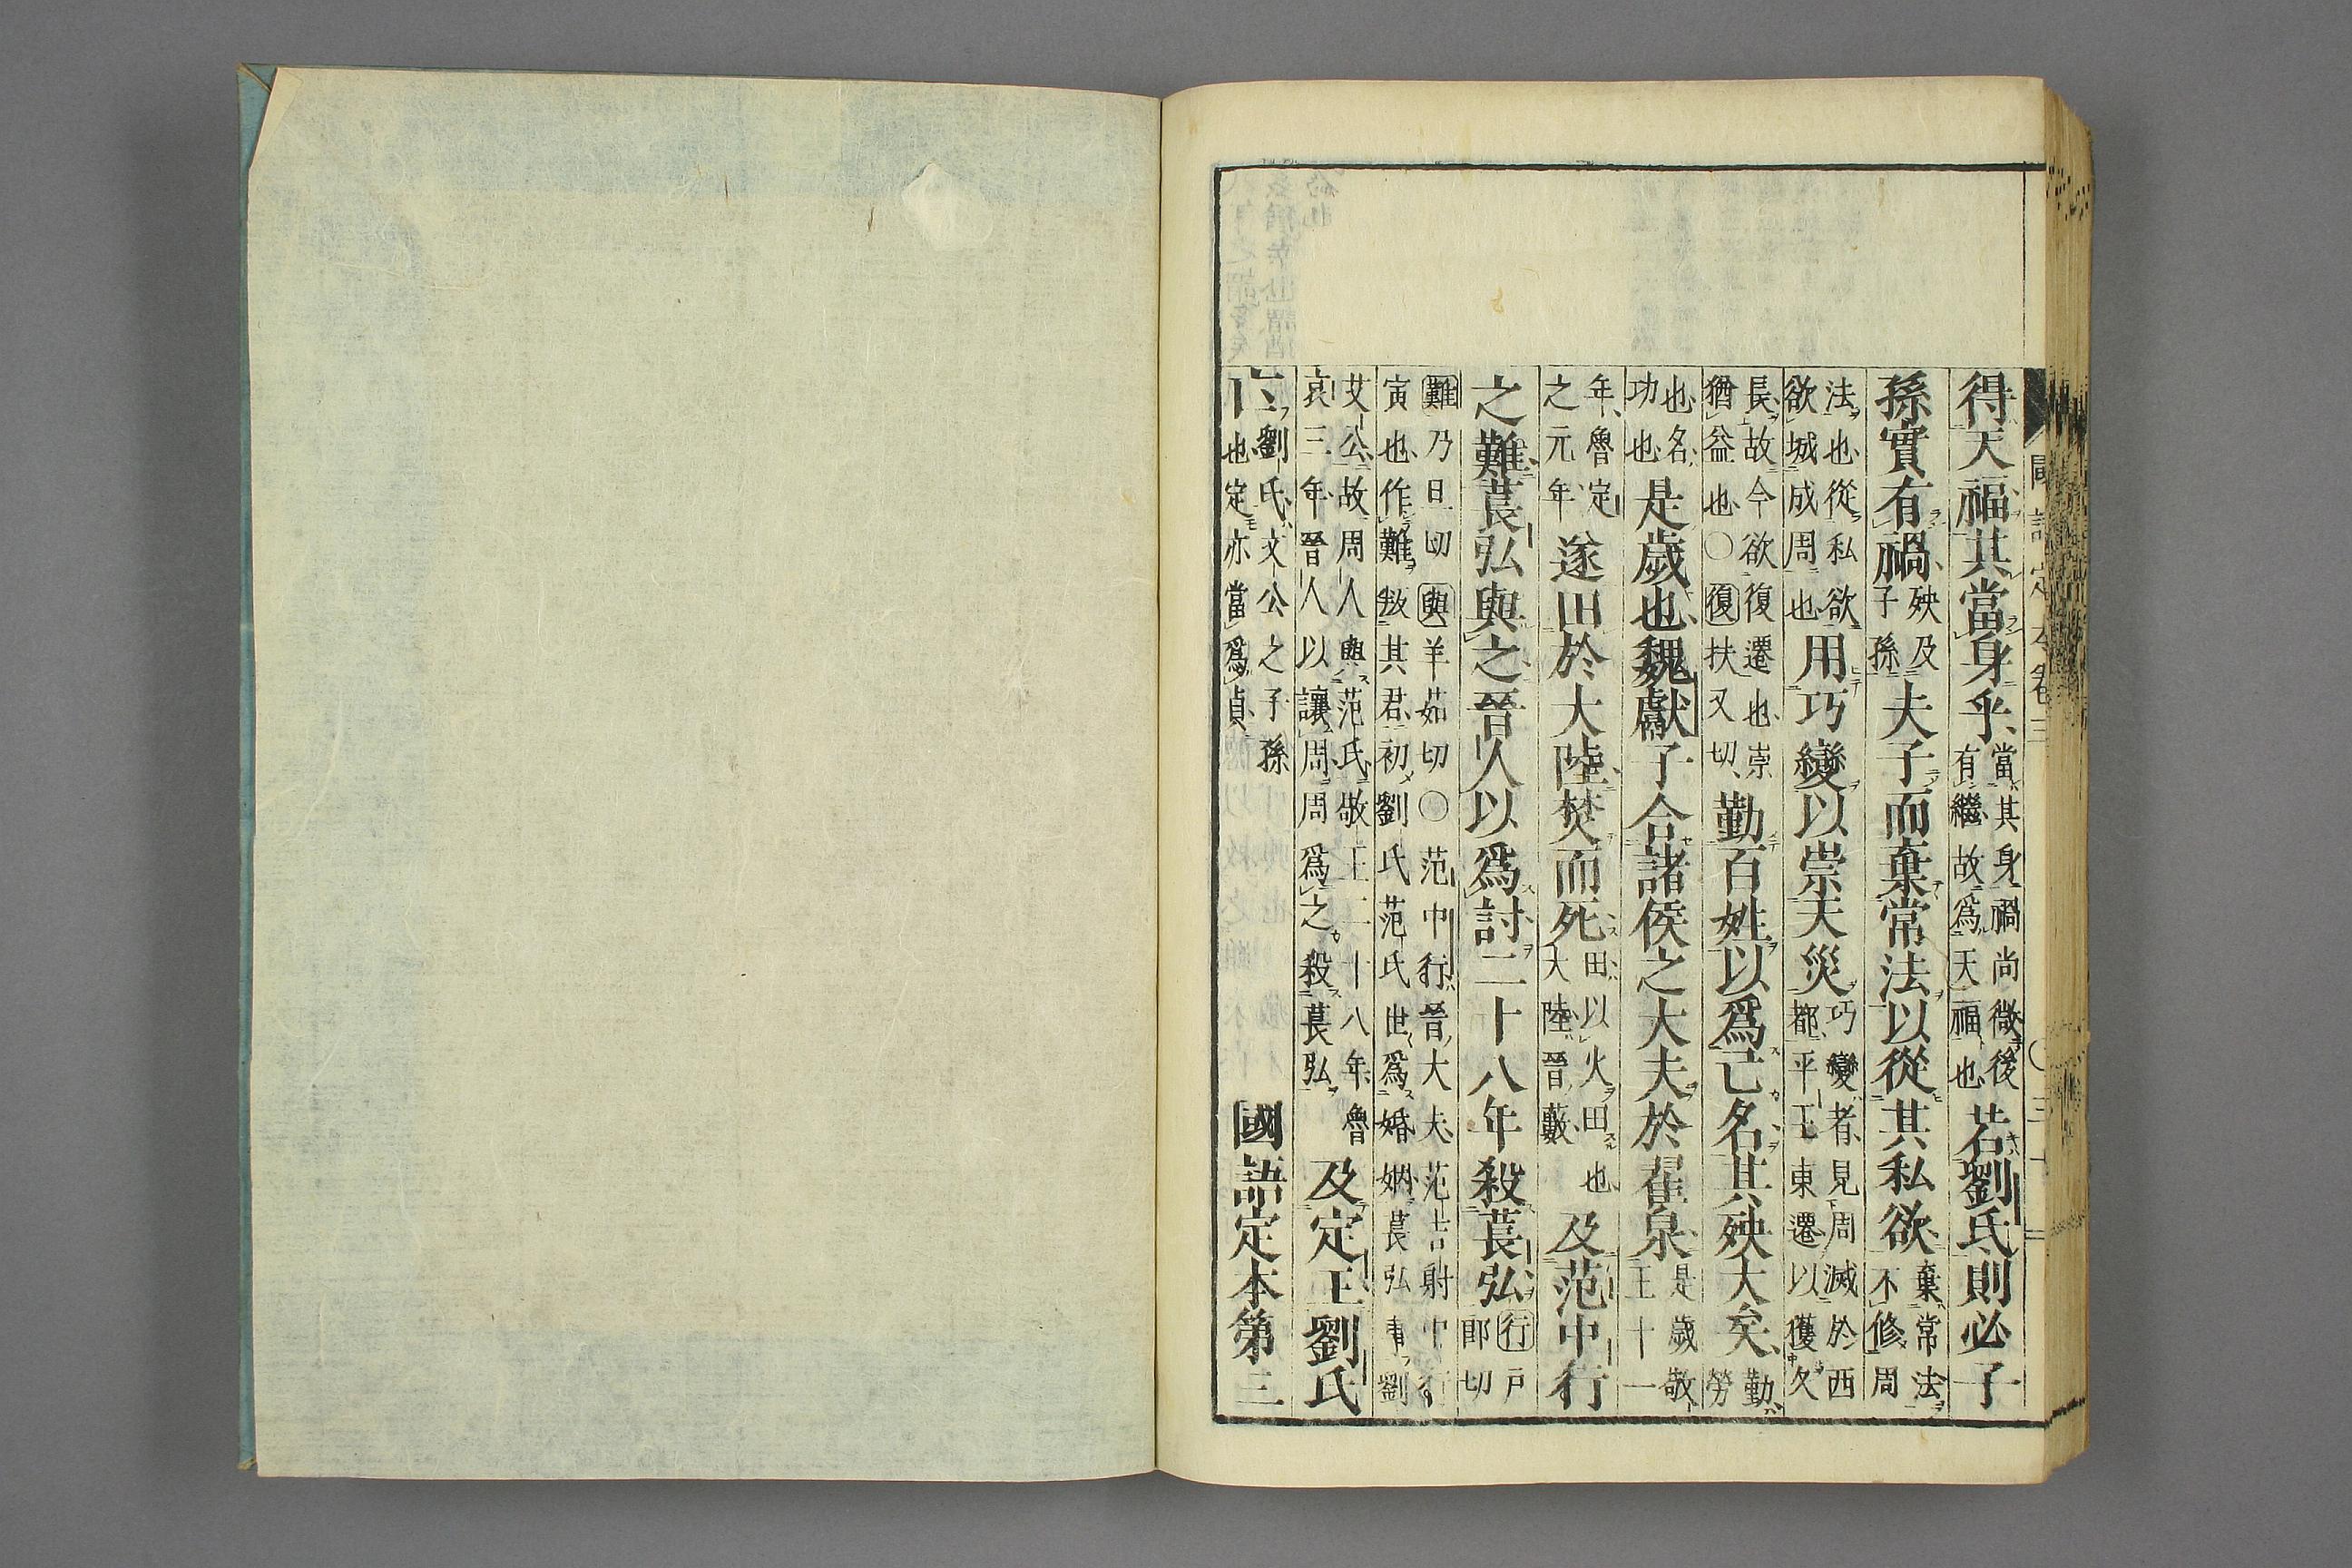 得天福其當身乎當其身禍尚微後有繼故爲天福也若劉氏則必子
孫實有禍殃及子孫夫子而棄常法以從其私欲棄常法不修周
法也從私欲欲城成周也用巧變以崇天災巧變者見周滅於西都平王東遷以獲久
長故今欲復遷也崇猶益也〇復扶又切勤百姓以爲己名其殃大矣勤勞
也名功也是歲也魏獻子合諸侯之大夫於翟泉是歲敬王十一
年魯定之元年遂田於大陸焚而死田以火田也大陸晉藪及范中行
之難萇弘與之晉人以爲討二十八年殺萇弘行戸郎切
難乃旦切與羊茹切〇范中行晉大夫范吉射中行寅也作難叛其君初劉氏范氏世爲婚姻萇弘事劉
文公故周人與范氏敬王二十八年魯哀三年晉人以讓周周爲之殺萇弘及定王劉氏
亡劉氏文公之子孫也定亦當爲貞
國語定本第三